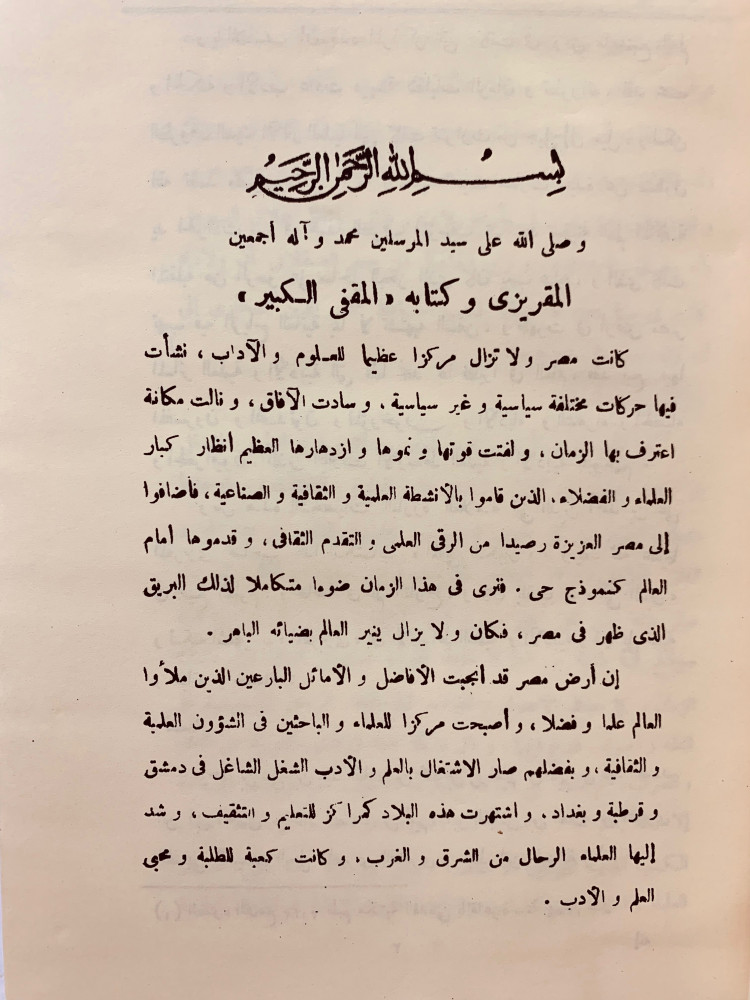 بسم الله الرحمن الرحيم
و صلى الله على سيد المرسلين محمد و آله أجمعين
المقريزى و كتابه «المقفى الكبير»
كانت مصر ولا تزال مركزا عظيما للعلوم و الآداب ، نشأت
فيها حركات مختلفة سياسية و غير سياسية ، و سادت الآفاق ، و نالت مكانة
اعترف بها الزمان ، و لفتت قوتها و نموها و ازدهارها العظيم أنظار كبار
العلماء و الفضلاء ، الذين قاموا بالأنشطة العلمية و الثقافية و الصناعية ، فأضافوا
إلى مصر العزيزة رصيدا من الرقى العلمى و التقدم الثقافى ، و قدموها أمام
العالم كنموذج حى . فنرى فى هذا الزمان ضوءا متكاملا لذلك البريق
الذى ظهر فى مصر ، فكان و لا يزال ينير العالم بضيائه الباهر .
إن أرض مصر قد أنجبت الأفاضل و الأماثل البارعين الذين ملأوا
العالم علما و فضلا ، و أصبحت مركزا للعلماء و الباحثين فى الشؤون العلمية
و الثقافية ، و بفضلهم صار الاشتغال بالعلم و الأدب الشغل الشاغل فى دمشق
و قرطبة و بغداد . و اشتهرت هذه البلاد كمراكز للتعليم و التثقيف ، و شد
إليها العلماء الرحال من الشرق و الغرب ، و كانت كعبة للطلبة و محبى
العلم و الأدب .